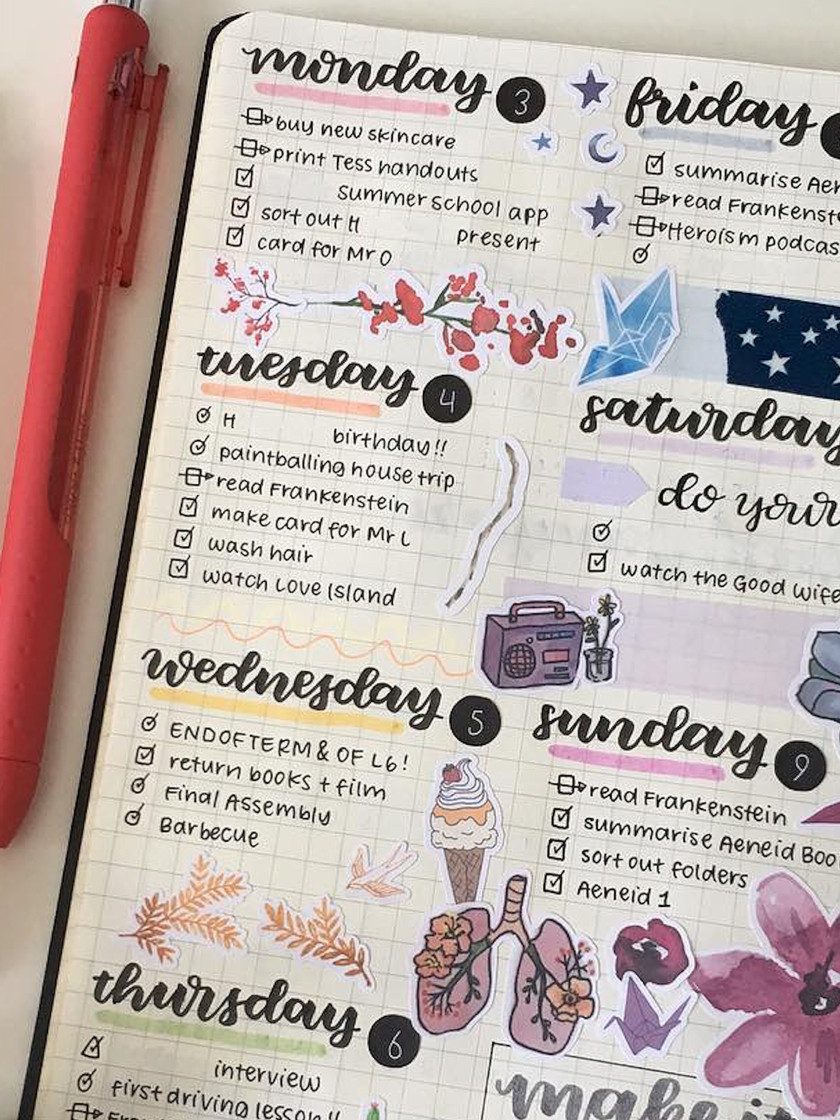 monday 3
buy new skincare
print Tess handouts
summer school app
sort out H present
card for Mr O
tuesday 4
H birthday!!
paintballing house trip
read Frankenstein
make card for Mr L
wash hair
watch Love Island
wednesday 5
END OF TERM & OF L6!
return books + film
Final Assembly
Barbecue
thursday 6
interview
first driving lesson!!
friday
summarise Aen
read Frankenst
Heroism podcas
saturday
do your
watch the Good Wife
sunday 9
read Frankenstein
summarise Aeneid Boo
sort out folders
Aeneid 1
make